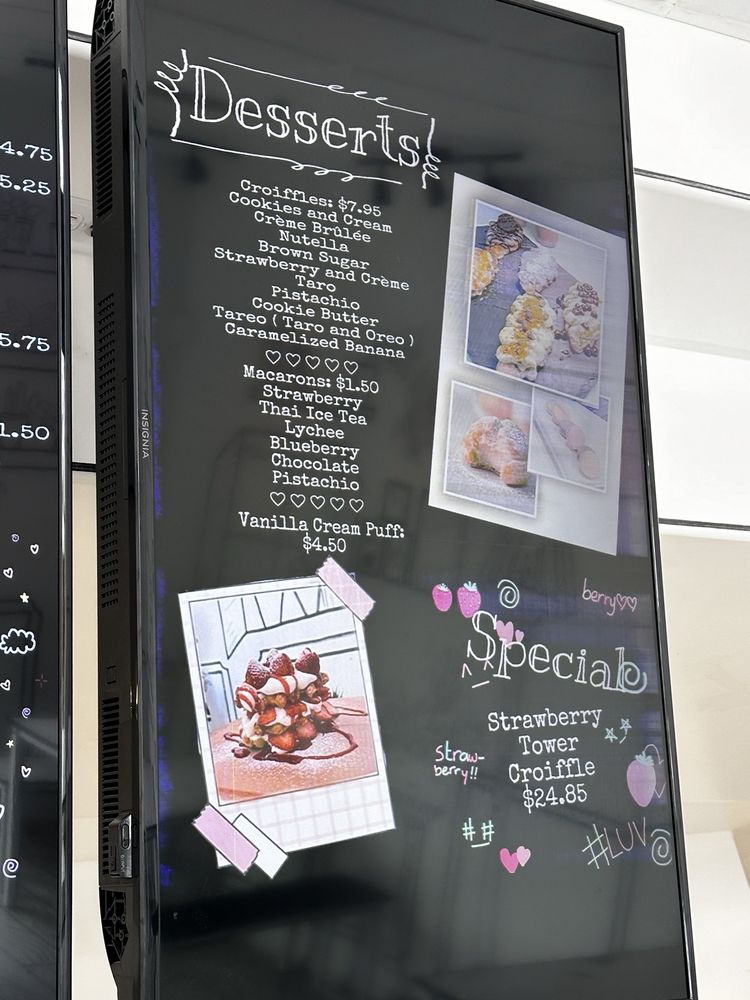 4.75
5.25
5.75
1.50
INSIGNIA
Desserts
Croiffles: $7.95
Cookies and Cream
Crème Brûlée
Nutella
Brown Sugar
Strawberry and Crème
Taro
Pistachio
Cookie Butter
Tareo ( Taro and Oreo )
Caramelized Banana
♡♡♡♡♡
Macarons: $1.50
Strawberry
Thai Ice Tea
Lychee
Blueberry
Chocolate
Pistachio
♡♡♡♡♡
Vanilla Cream Puff:
$4.50
berry♡♡
Special
Strawberry
Tower
Croiffle
$24.85
straw-
berry!!
#LUV